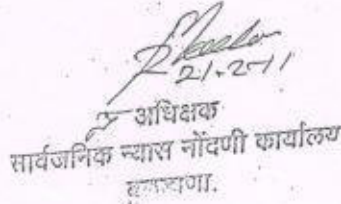 21-2-11
अधिक्षक
सार्वजनिक न्यास नोंदणी कार्यालय
बुलडाणा.